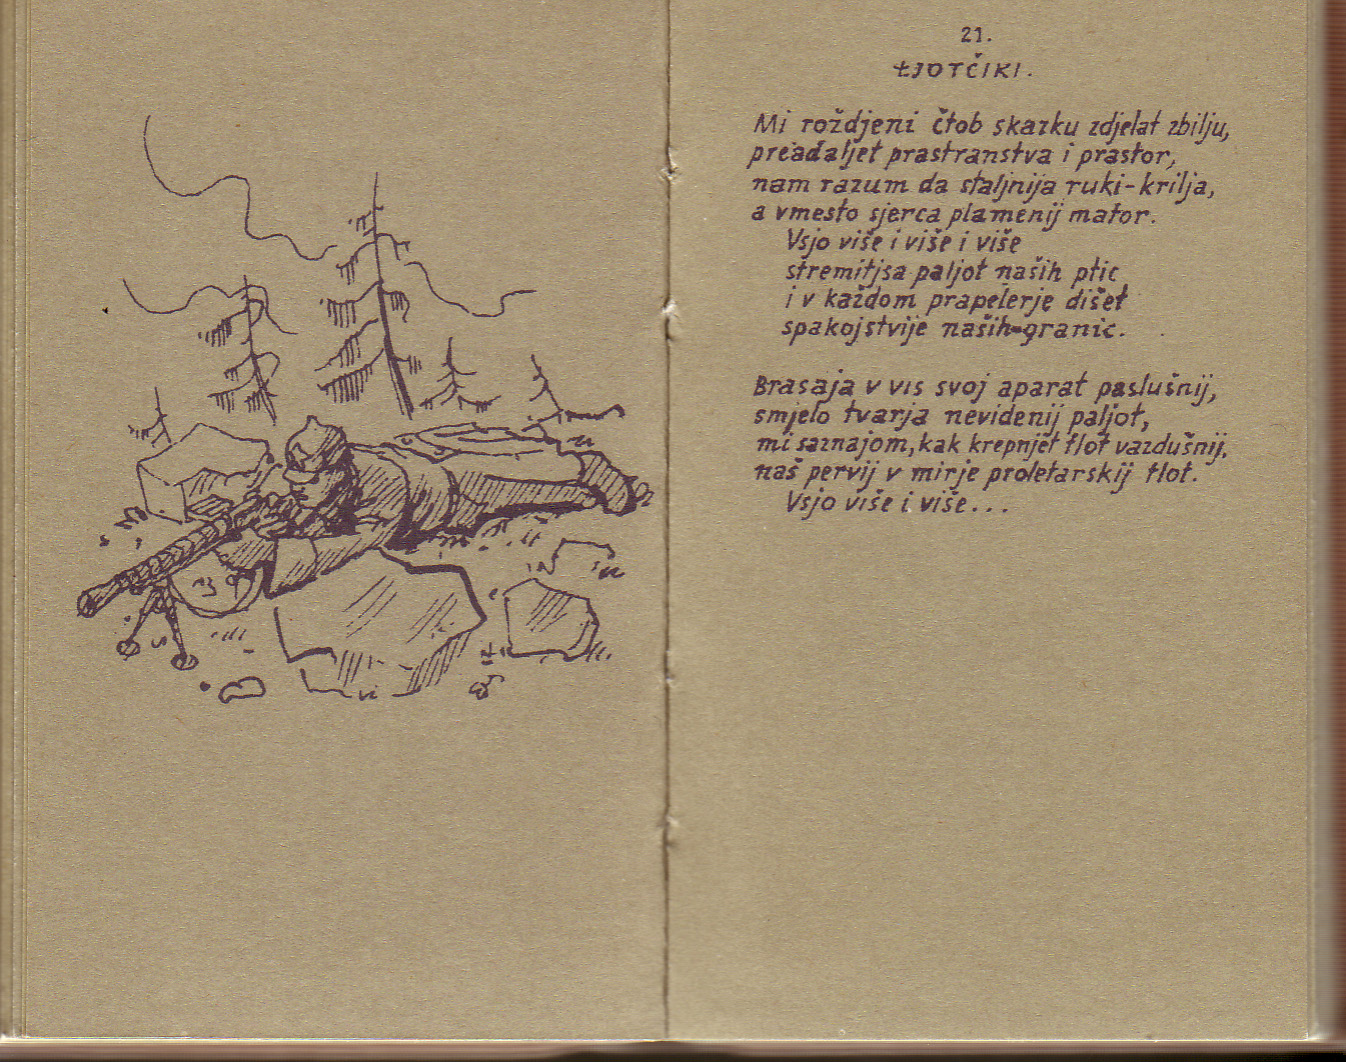 21.
ŁJOTČIKI.
Mi roždjeni čtob skazku zdjelat zbilju,
preadaljet prastranstva i prastor,
nam razum da staljnija ruki-krilja,
a vmesto sjerca plamenij mator.
Vsjo više i više i više
stremitjsa paljot naših ptic
i v každom prapelerje dišet
spakojstvije naših granic.
Brasaja v vis svoj aparat paslušnij,
smjelo tvarja nevidenij paljot,
mi saznajom, kak krepnjet flot vazdušnij,
naš pervij v mirje proletarskij flot.
Vsjo više i više...